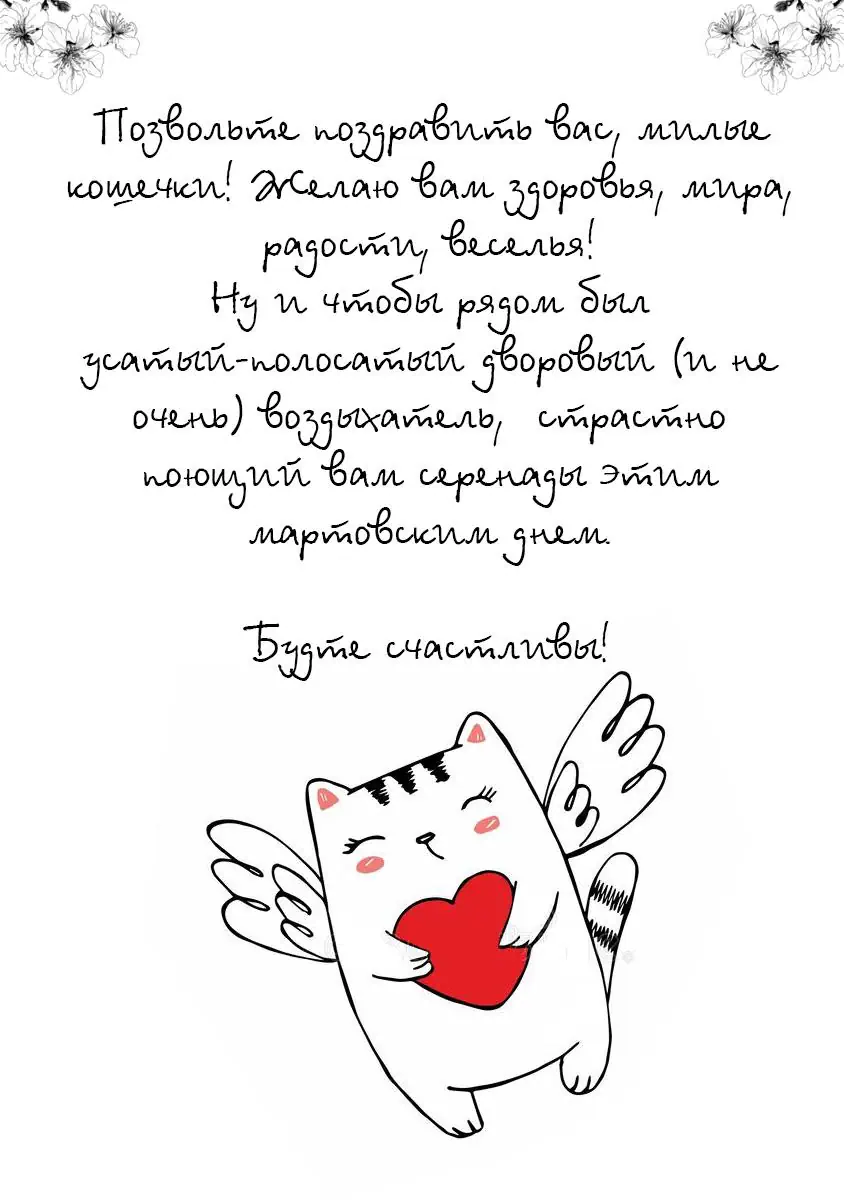 Позвольте поздравить вас, милые
кошечки! Желаю вам здоровья, мира,
радости, веселья!
Ну и чтобы рядом был
усатый-полосатый дворовый (и не
очень) воздыхатель, страстно
поющий вам серенады этим
мартовским днем.
Будте счастливы!